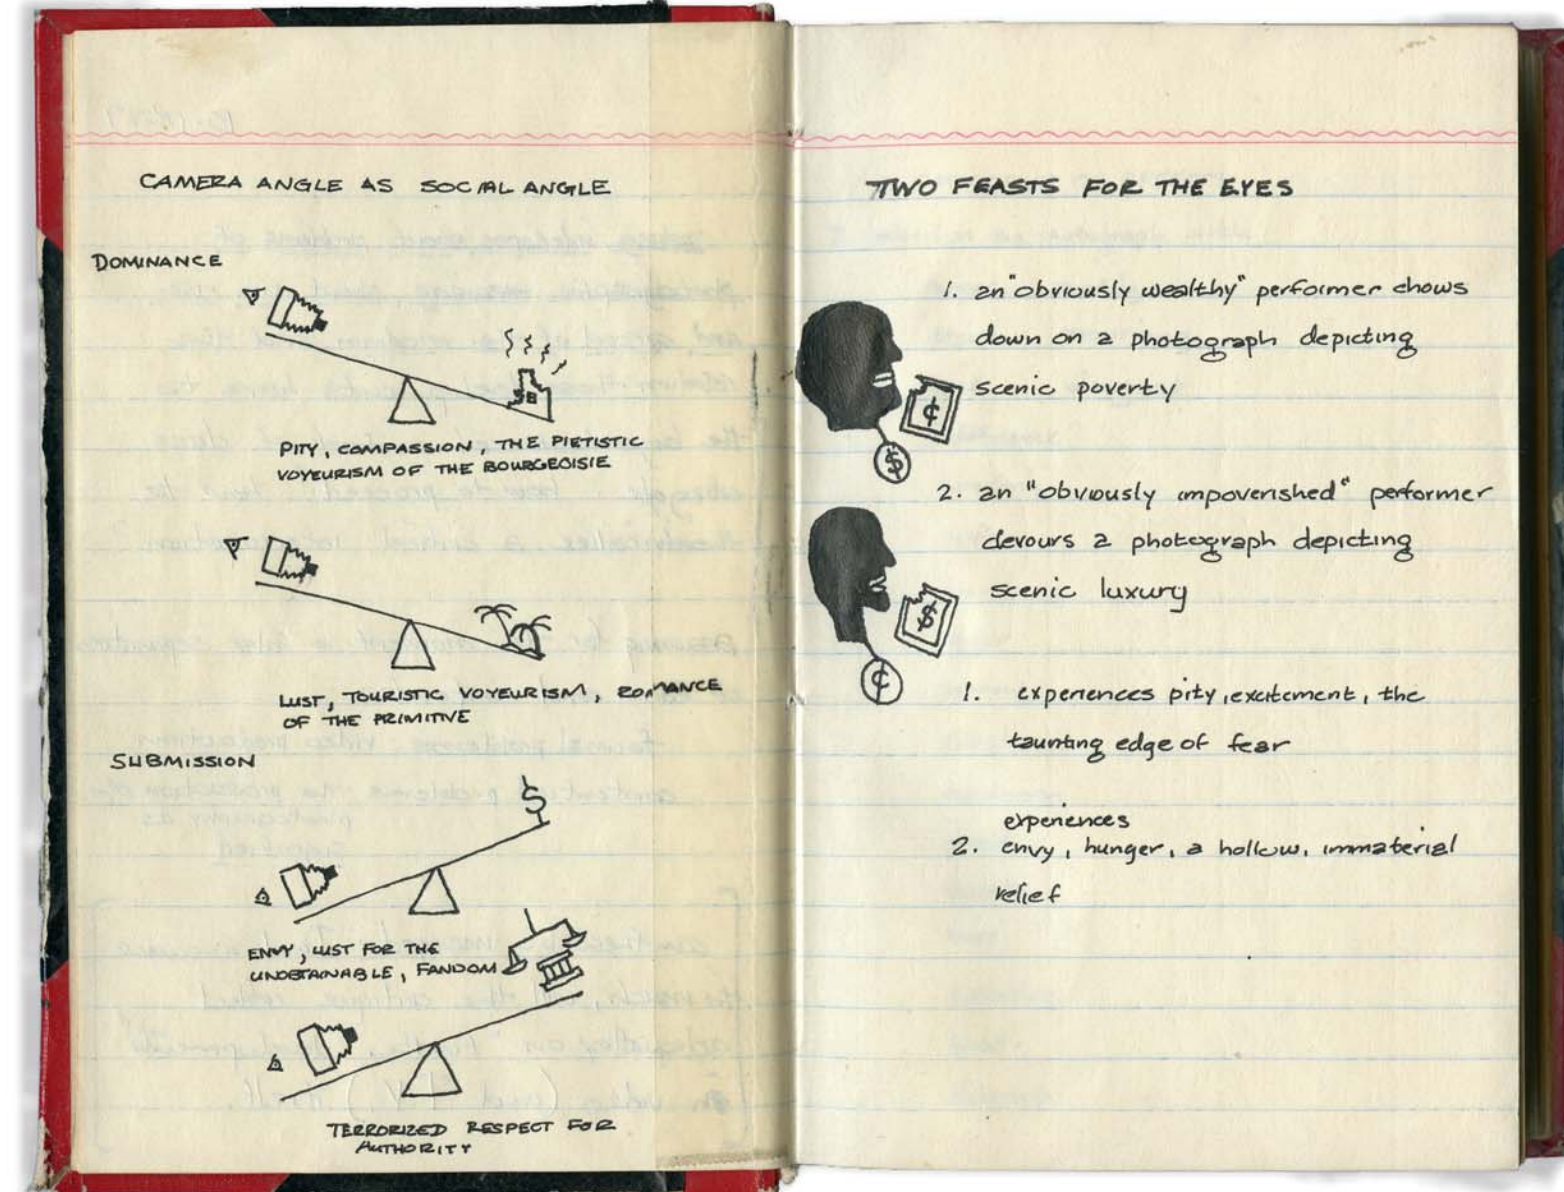 CAMERA ANGLE AS SOCIAL ANGLE
DOMINANCE
PITY, COMPASSION, THE PIETISTIC
VOYEURISM OF THE BOURGEOISIE
LUST, TOURISTIC VOYEURISM, ROMANCE
OF THE PRIMITIVE
SUBMISSION
$
ENVY, LUST FOR THE
UNOBTAINABLE, FANDOM
TERRORIZED RESPECT FOR
AUTHORITY
TWO FEASTS FOR THE EYES
1. an "obviously wealthy" performer chows
down on a photograph depicting
scenic poverty
¢
$
2. an "obviously impoverished" performer
devours a photograph depicting
scenic luxury
$
¢
1. experiences pity, excitement, the
taunting edge of fear
experiences
2. envy, hunger, a hollow, immaterial
relief